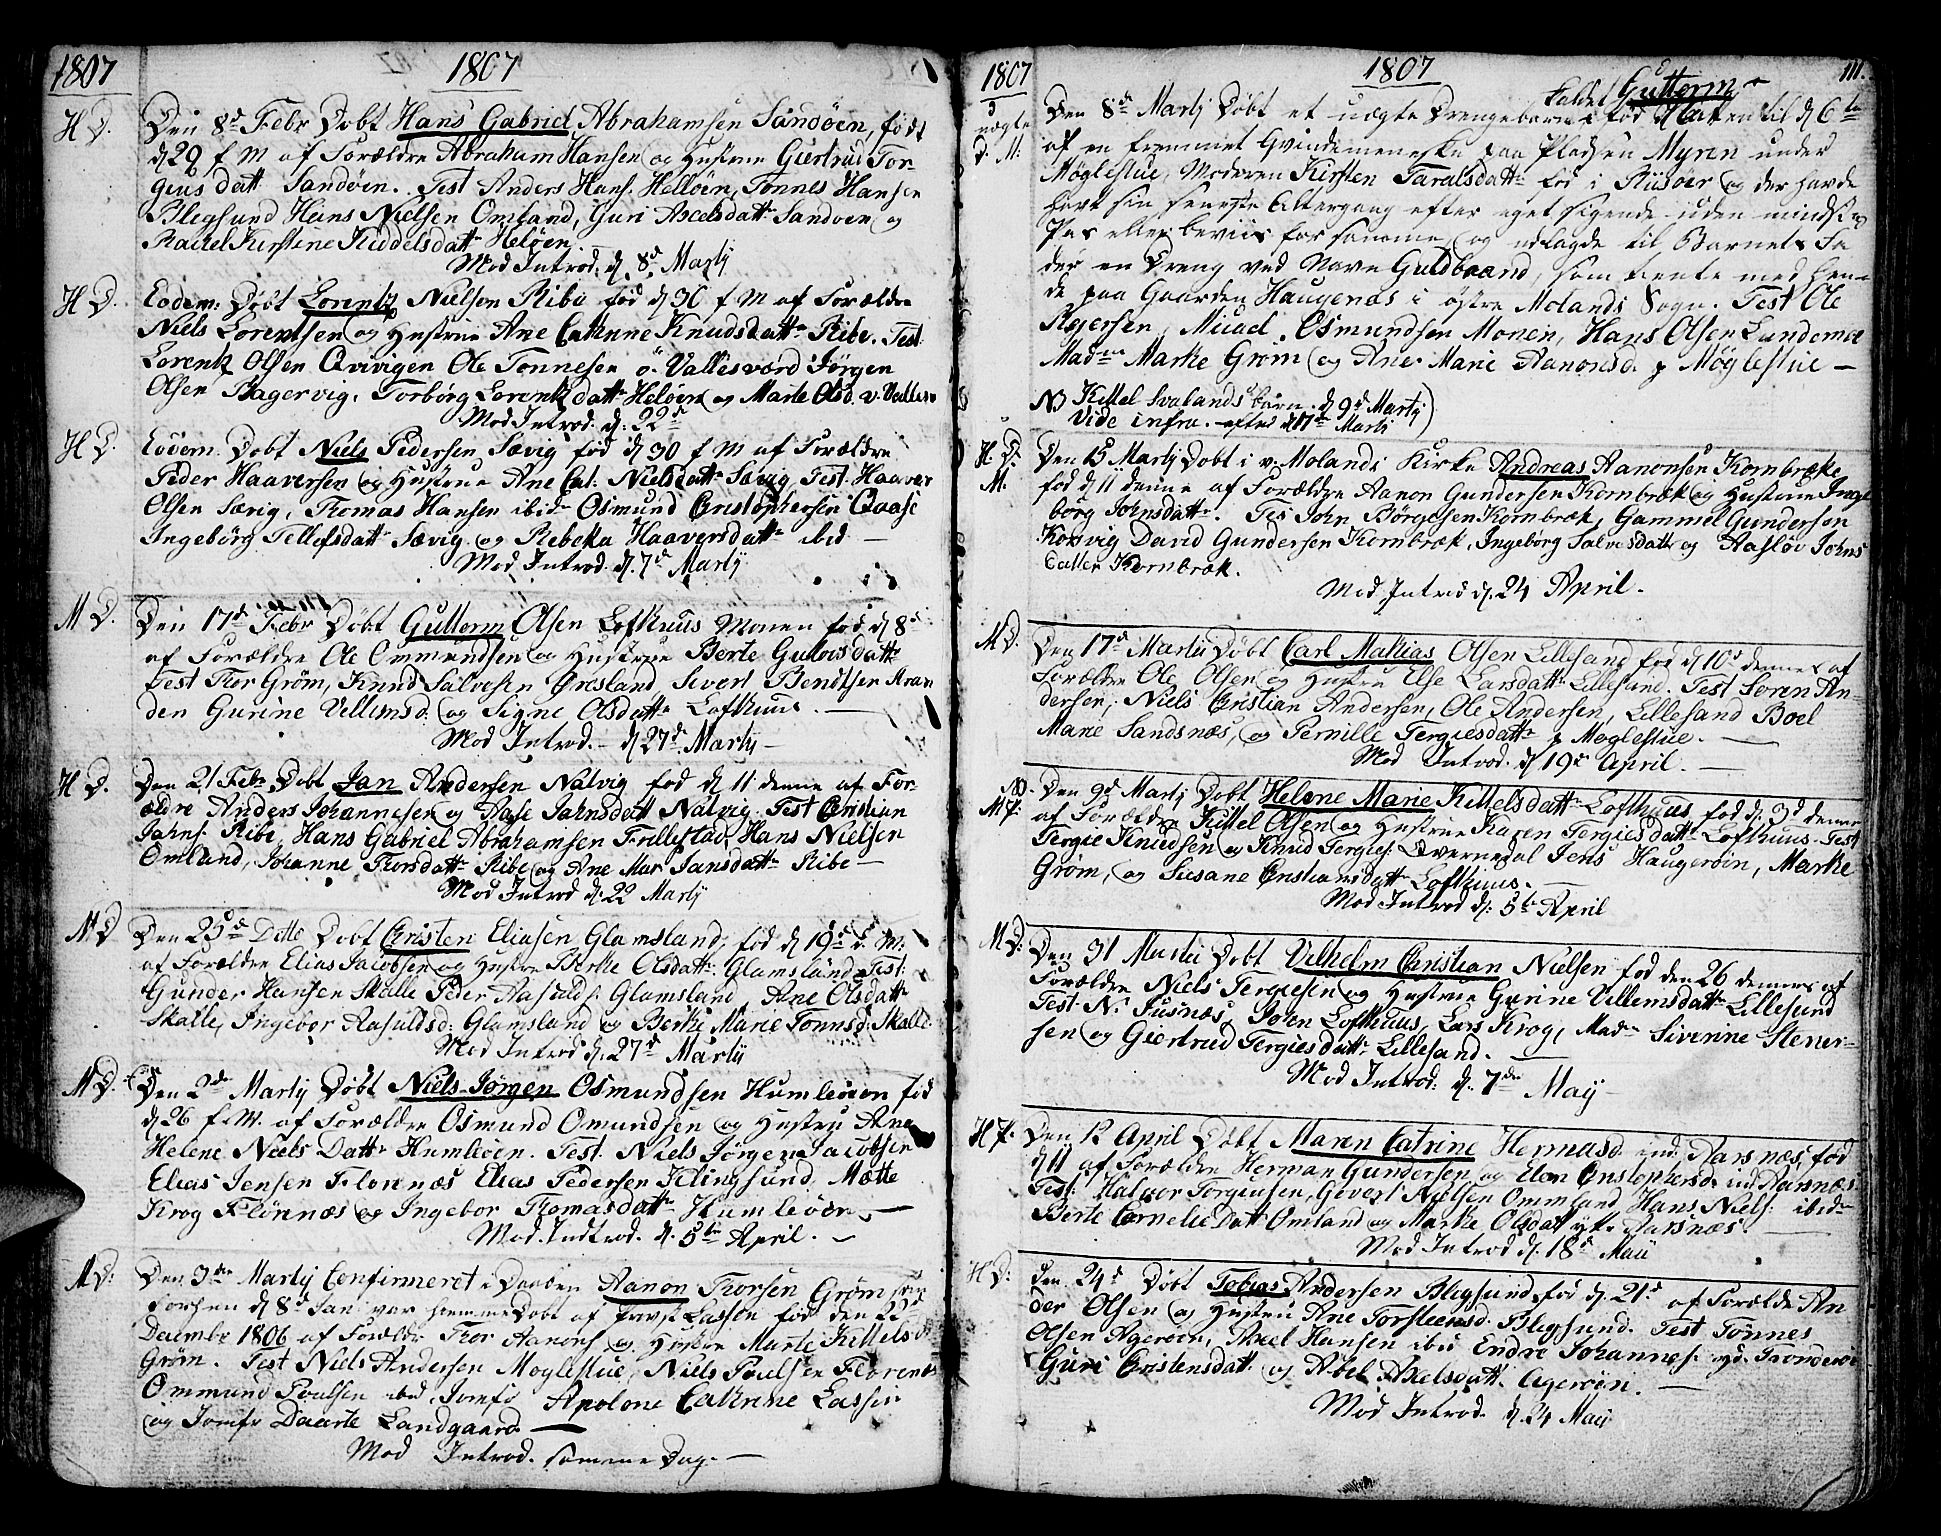 1807
1807
H D.
Den 8d Febr Døbt Hans Gabriel Abrahamsen Sandøen, født
d 29 f M af Forældre Abraham Hansen og Hustrue Giertrud Tor-
gius datt Sandøen. Test Anders Hans. Helløen, Tønnes Hansen
Blegsund Hans Nielsen Omland, Guri Axelsdatt Sandøen og
Rackel Kirstine Kiddelsdatt Heløen.
Mod Introd. d. 8d Martj
H D.
Eodem: Døbt Lorentz Nielsen Ribe fød d 30 f M af Forældre
Niels Lorentsen og Hustrue Ane Catrine Knudsdatt Ribe. Test.
Lorentz Olsen Qvivigen Ole Tønnesen ö. Vallesværd Jørgen
Olsen Bagervig. Torbørg Lorentzdatt Heløen og Marte Olsd. v. Valles
Mod Introd. d: 22d
H D.
Eodem Døbt Niels Pedersen Sævig fød d 30 f M af Forældre
Peder Haaversen og Hustrue Ane Cat. Nielsdatt Sævig Test. Haaver
Olsen Sævig, Thomas Hansen ibid Osmund Cristophersen Qaase
Ingebørg Tellefsdatt Sævig og Rebeka Haaversdatt ibid —
Mod Introd. d. 7d Martj
M D.
Den 17d Febr Døbt Guttorm Olsen Lofthuus Monen fød d 8d
af Forældre Ole Ommundsen og Hustrue Berte Gutorsdatt
Test Tor Grøm, Knud Salvesen Sivert Bendtsen Stran
den Gurine Vellemsd. og Signe Olsdatt Lofthuus. —
Mod Introd. — d 27d Martj —
H D.
Den 21 Febr Døbt Jan Andersen Natvig fød d 11 denne af For-
ældre Anders Johannesen og Aase Jahnsdatt Natvig. Test Cristian
Jahns: Ribe, Hans Gabriel Abrahamsen Frollestad, Hans Nielsen
Omland, Johanne Thorsdatt Ribe og Ane Mar Jansdatt Ribe —
Mod Introd d. 22 Martj
M D
Den 25d Dette Døbt Cristen Eliasen Glamsland, fød d 19d M.
af Forældre Elias Jacobsen og Hustrue Berte Olsdatt Glamsland Test:
Gunder Hansen Skalle Peder Aasulds: Glamsland, Ane Olsdatt
Skalle, Ingebor Aasuldsd: Glamsland og Berte Marie Tønnsd: Skalle
Mod Introd d. 27d Martij
M D.
Den 2d Martj Døbt Niels Jørgen Osmundsen Humleøen fød
d 26 f. M. af Forældre Osmund Omundsen og Hustru Ane
Helene Niels Datt Humleøen. Test. Niels Jørgen Jacobsen
Elias Jensen Florenæs Elias Pedersen Kelingsund, Mætte
Krog Flønnæs og Ingebor Thomasdatt Humleøen. —
Mod. Indtrod. d. 5te April. —
M D:
Den 3die Martij Confirmeret i Daaben Aanon Thorsen Grøm som
forhen d 8d Jan var hiemmeDøbt af Provst Lassen fød den 22d
Decembr 1806 af Forældre Thor Aanons og Hustrue Marte Kittelsd
Grøm. Test Niels Andersen Moglestue, Niels Poulsen Florenæs
Ommund Poulsen ibid Jomfr Apolone Catrine Lassen
og Jomfr Daarte Landgaard —
Mod Introd. samme Dag. —
1807
1807
111.
uægte
D. M:
kaldet Guttorm
Den 8d Martj Døbt et uægte Drengebarn fød Natten til d 6te
af en fremmet Qvindemenneske paa Pladsen Myren under
Møglestue, Moderen Kirsten Taralsdatt fød i Riisøer og der havde
havt sin seneste Altergang efter eget sigende uden mindste
Pas eller beviis for samme, og udlagde til Barnets Fa
der en Dreng ved Navn Guldbrand, som tiente med hen-
de paa Gaarden Haugenæs i østre Molands Sogn. Test Ole
Rejersen, Micael Osmundsen Monen, Hans Olsen Lundemoe
Madme Marke Grøm og Ane Marie Aanonsd. p Møglestue —
NB Kittel Svalands barn. d 9d Martj
Vide infra. efter d 17de Martj
H D.
M.
Den 15 Martj Døbt i v. Molands Kirke Andreas Aanonsen Kornbræke
fød d 11 denne af Forældre Aanon Gundersen Kornbræk og Hustrue Inge
børg Johnsdatt. Tes John Børgesen Kornbræk, Gammel Gundersen
Korsvig David Gundersen Kornbræk, Ingeborg Salvesdatt og Aasløv Johns
Datter Kornbræk.
Mod Introd d. 24 April.
M D.
Den 17d Martij Døbt Carl Mathias Olsen Lillesand fød d 10d dennes af
Forældre Ole Olsen og Hustru Else Larsdatt Lillesand. Test Søren An-
dersen, Niels Cristian Andersen, Ole Andersen, Lillesand Boel
Marie Sandsnæs, og Pernille Tergiesdatt p Moglestue. —
Mod Introd. d 19d April. —
NB.
M P.
Den 9d Martj Døbt Helene Marie Kittelsdatt Lofthuus fød d. 3d denne
af Forældre Kittel Olsen og Hustrue Karen Tergiesdatt Lofthuus. Test
Tergie Knudsen og Knud Tergies: Øvernedal Jens Haugerøin, Marke
Grøm, og Susane Cristiansdatt Lofthuus. —
Mod Introd d: 5te April
M D:
Den 31 Martij Døbt Vilhelm Christian Nielsen fød den 26 dennes af
Forældre Niels Tergiesen og Hustrue Gurine Villemsdatt Lillesand
Test. N. Jusnæs, John Lofthuus, Lars Krog, Made Siverine Stener-
sen og Giertrud Tergiesdatt Lillesand.
Mod Introd: d. 7de Maij —
H P.
Den 12 April Døbt Maren Catrine Hermansd. ind: Aarsnæs, fød
d 11 af Forældre Herman Gundersen og Elen Cristophersd. ind Aarsnæs.
Test: Halvor Torgiusen, Gevert Nielsen Ommland Hans Niels: ibid
Berte Cornelie Datt Omland og Marke Olsdatt ytr Aarsnæs. —
Mod Introd d. 18d Maij
H D:
Den 24d Døbt Tobias Andersen Blegsund fød d. 21d af Forældre An
der Olsen og Hustru Ane Torsteensd. Blegsund. Test Tønnes
Olsen Ageroen, Axel Hansen ibid Endre Johannes: yd. Trondøen
Guri Cristensdatt og Abel Axelsdatt Agerøen. —
Mod Introd. d. 24 Maij